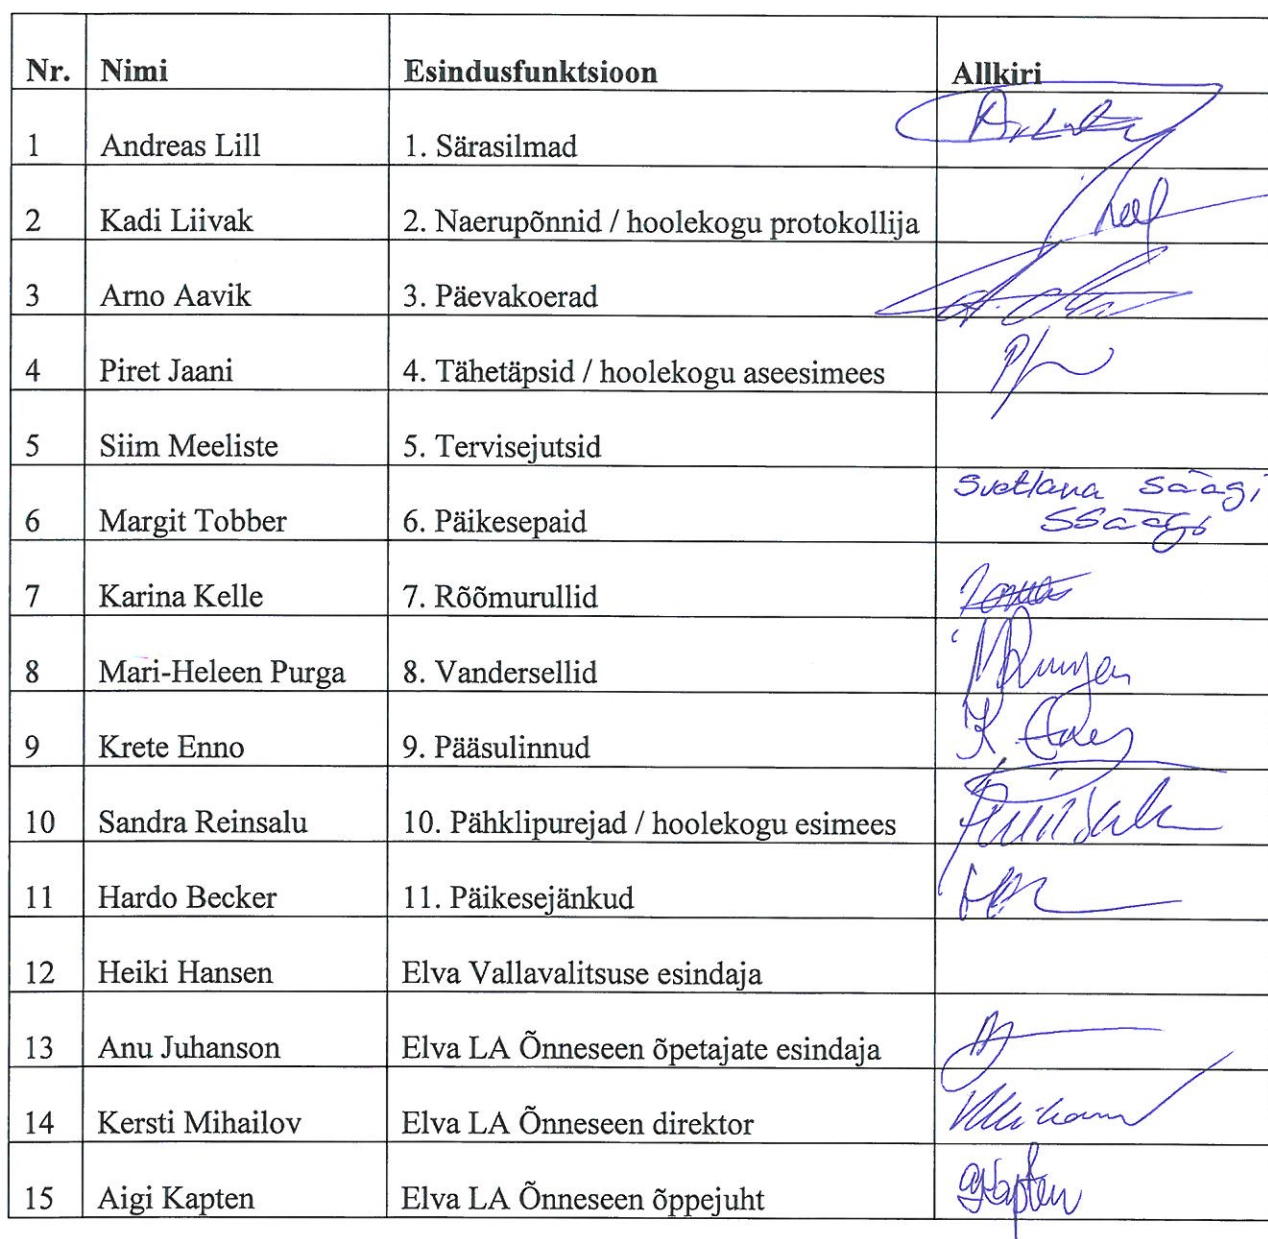 Nr. Nimi Esindusfunktsioon Allkiri
1 Andreas Lill 1. Särasilmad
2 Kadi Liivak 2. Naerupõnnid / hoolekogu protokollija
3 Arno Aavik 3. Päevakoerad
4 Piret Jaani 4. Tähetäpsid / hoolekogu aseesimees
5 Siim Meeliste 5. Tervisejutsid
Svetlana Säägi
6 Margit Tobber 6. Päikesepaid SSäägi
7 Karina Kelle 7. Rõõmurullid
8 Mari-Heleen Purga 8. Vandersellid
9 Krete Enno 9. Pääsulinnud
10 Sandra Reinsalu 10. Pähklipurejad / hoolekogu esimees
11 Hardo Becker 11. Päikesejänkud
12 Heiki Hansen Elva Vallavalitsuse esindaja
13 Anu Juhanson Elva LA Õnneseen õpetajate esindaja
14 Kersti Mihailov Elva LA Õnneseen direktor
15 Aigi Kapten Elva LA Õnneseen õppejuht